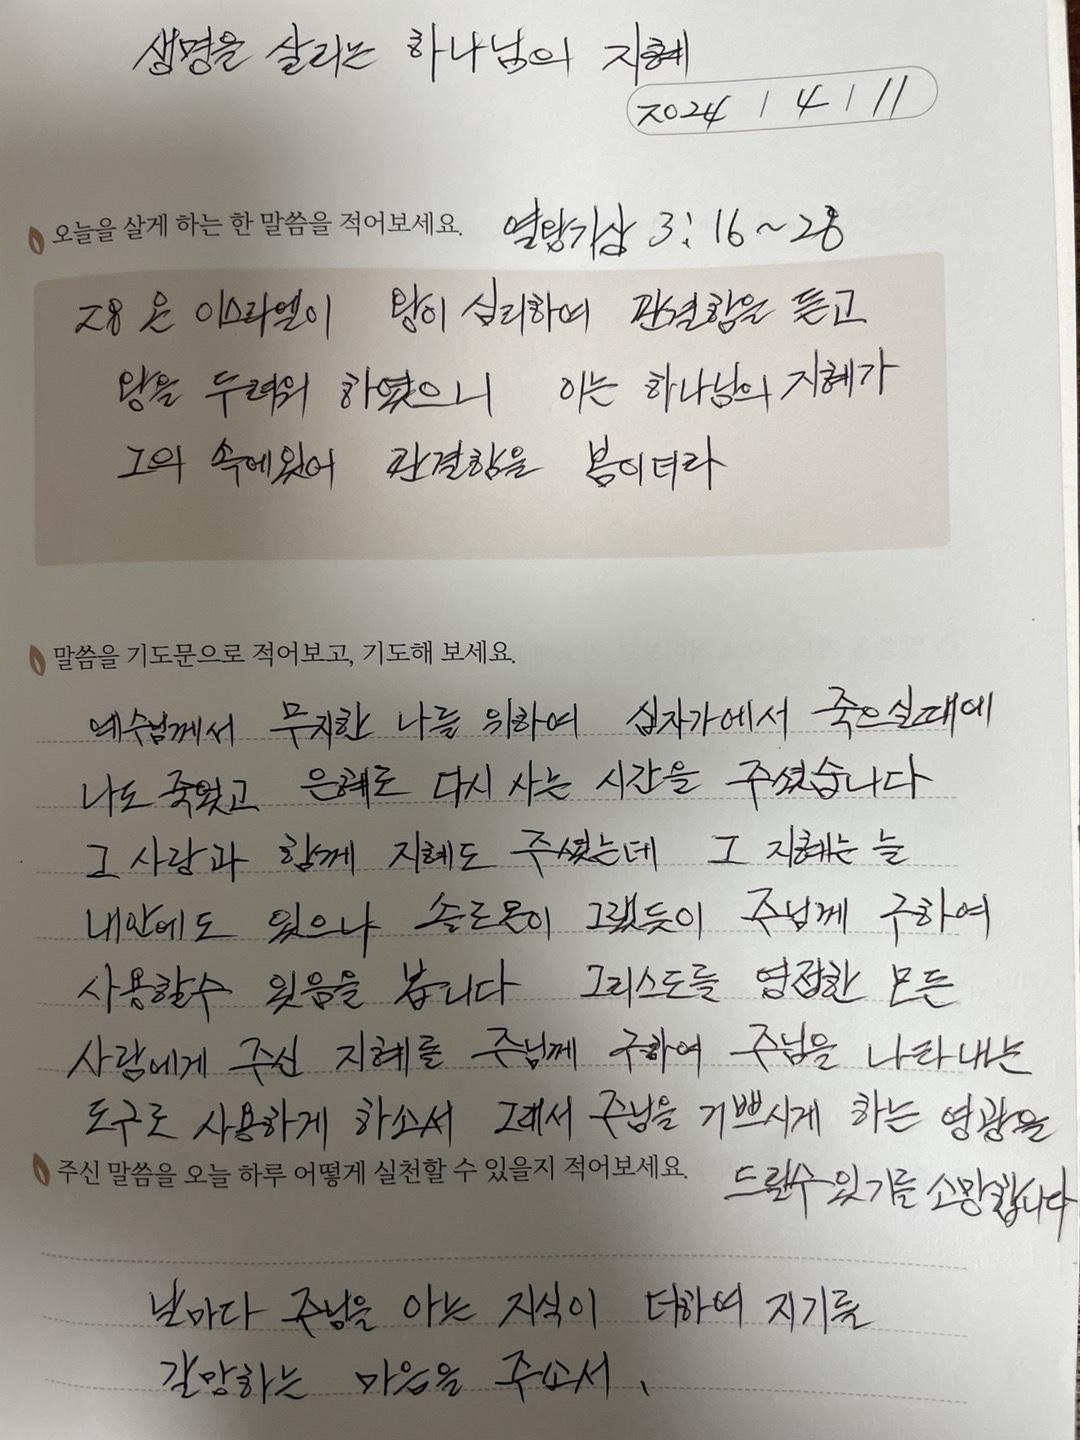 생명을 살리는 하나님의 지혜
2024 / 4 / 11
오늘을 살게 하는 한 말씀을 적어보세요. 열왕기상 3:16~28
28 온 이스라엘이 왕이 심리하여 판결함을 듣고
왕을 두려워 하였으니 이는 하나님의 지혜가
그의 속에있어 판결함을 봄이더라
말씀을 기도문으로 적어보고, 기도해 보세요.
예수님께서 무지한 나를 위하여 십자가에서 죽으실때에
나도 죽었고 은혜로 다시 사는 시간을 주셨습니다
그 사랑과 함께 지혜도 주셨는데 그 지혜는 늘
내안에도 있으나 솔로몬이 그랬듯이 주님께 구하여
사용할수 있음을 봅니다 그리스도를 영접한 모든
사람에게 주신 지혜를 주님께 구하여 주님을 나타내는
도구로 사용하게 하소서 그래서 주님을 기쁘시게 하는 영광을
드릴수 있기를 소망합니다
주신 말씀을 오늘 하루 어떻게 실천할 수 있을지 적어보세요.
날마다 주님을 아는 지식이 더하여 지기를
갈망하는 마음을 주소서.